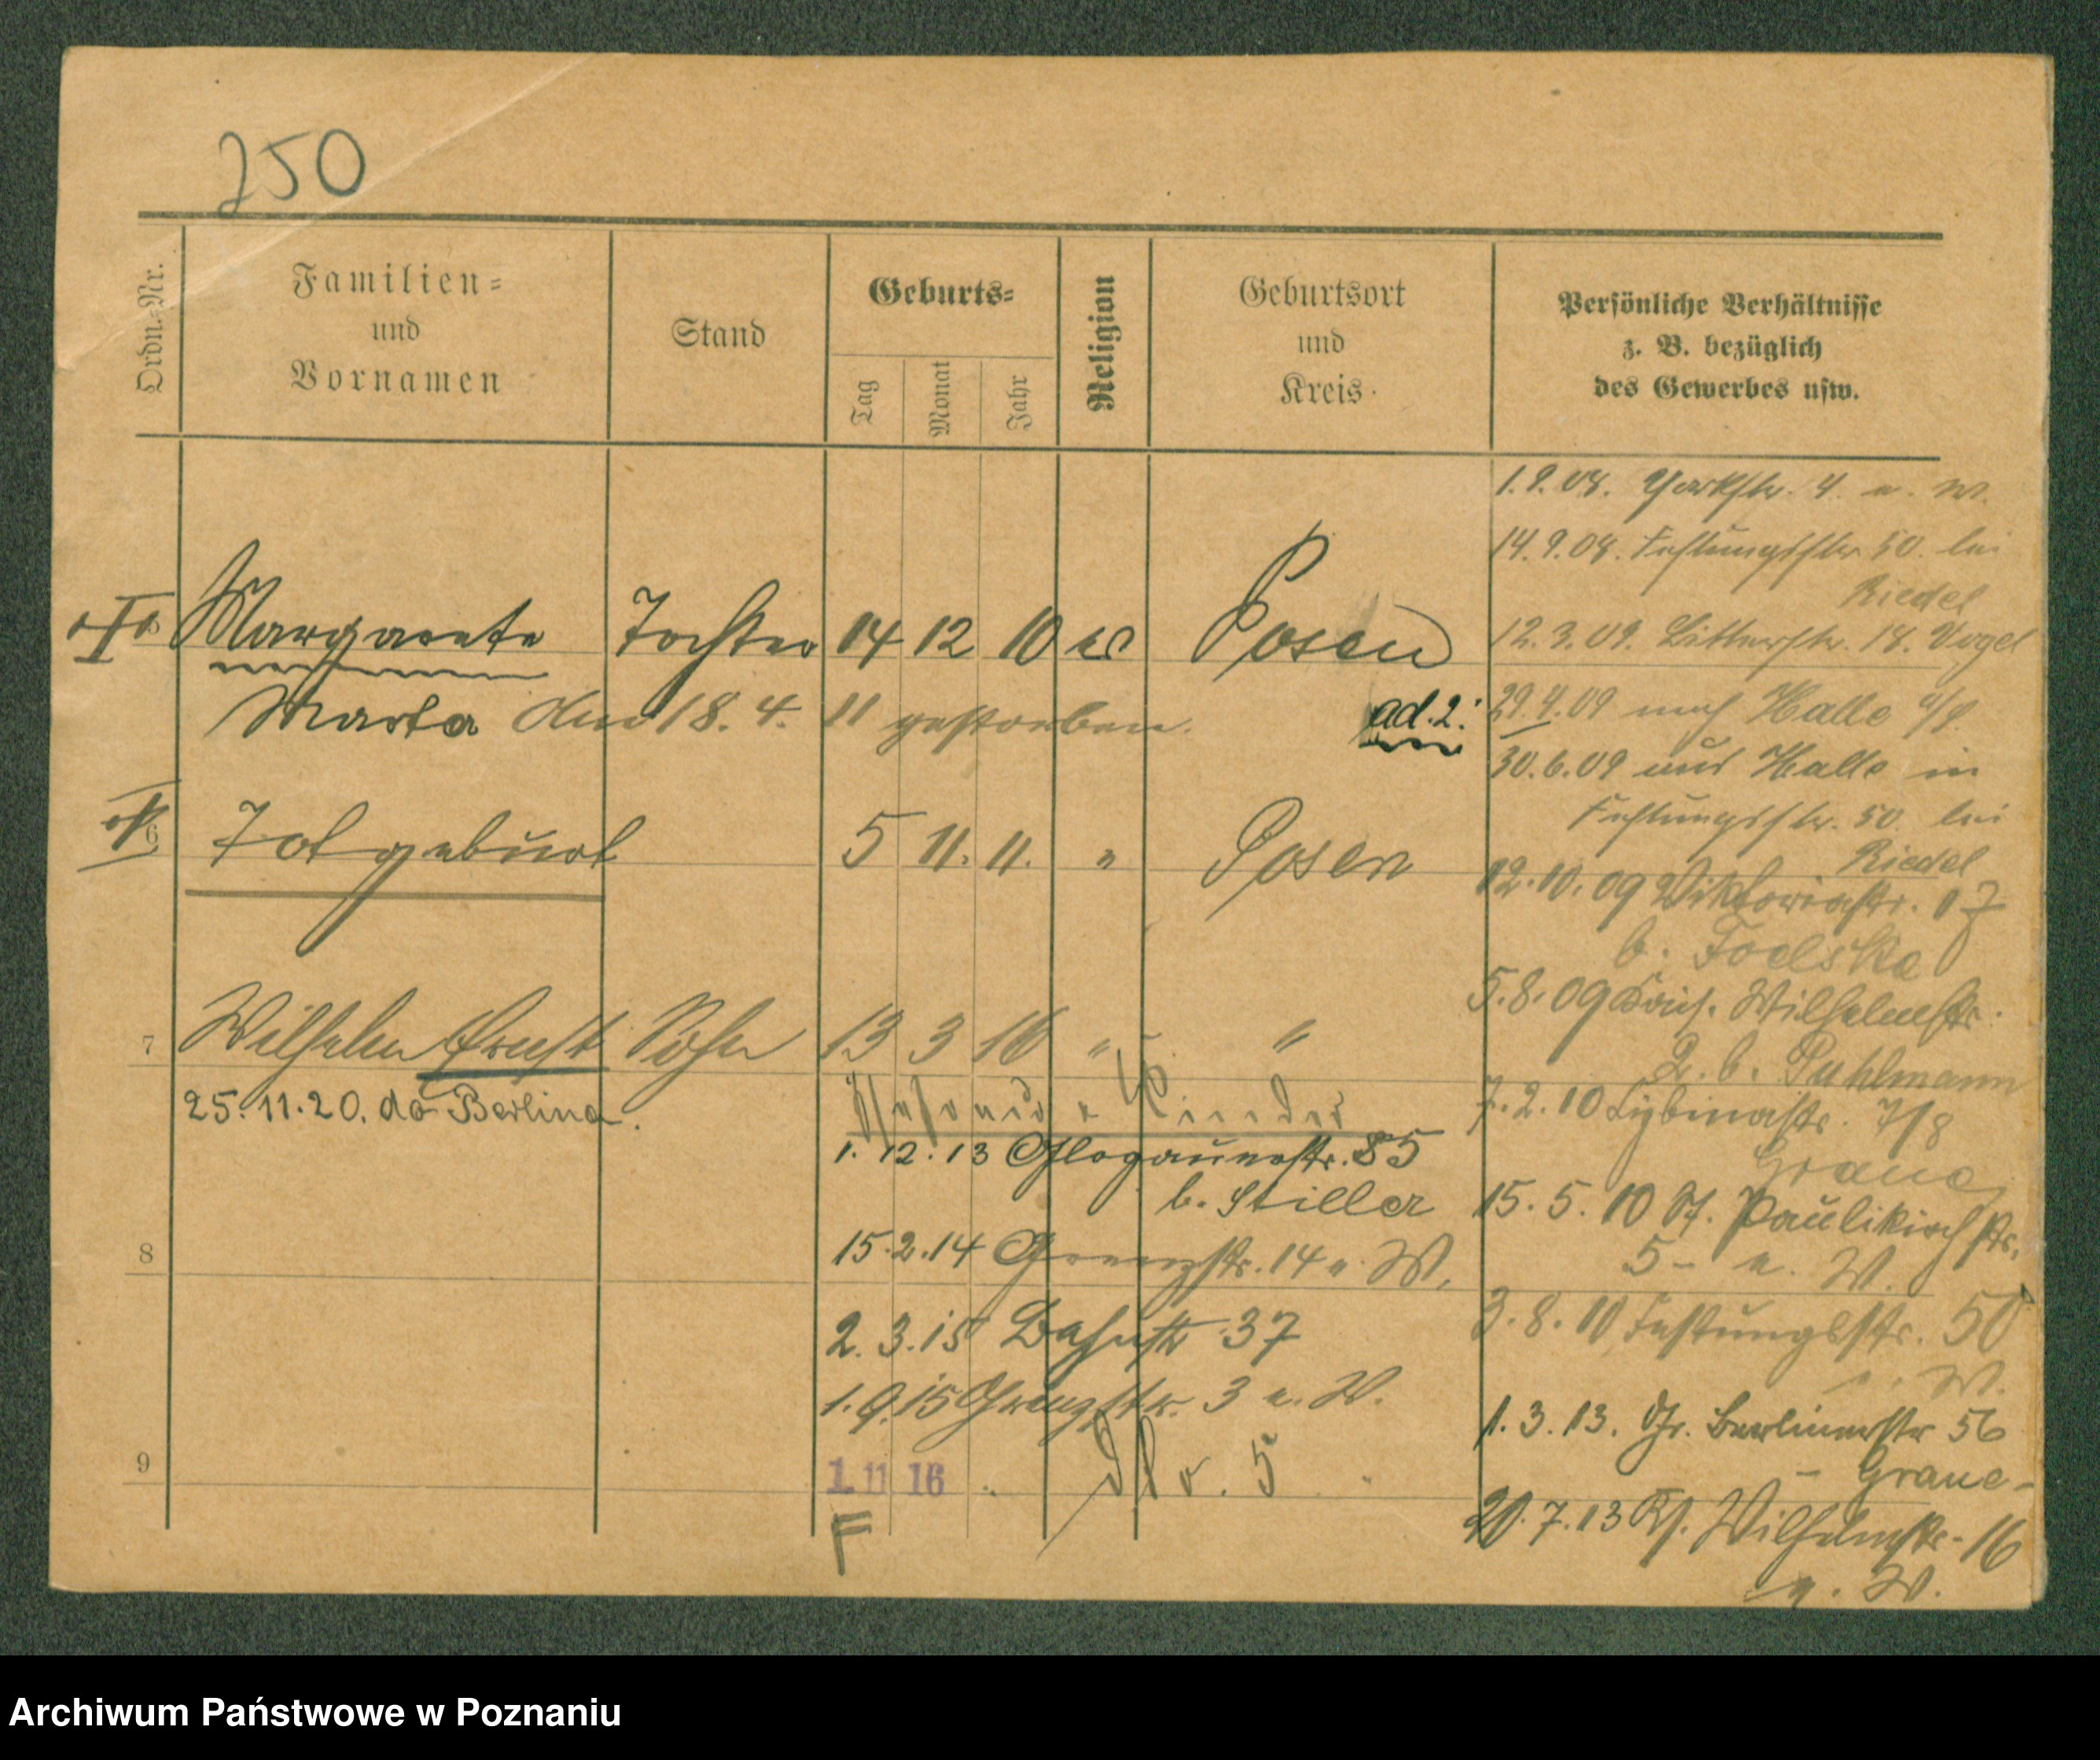 250
Ordn.-Nr.
Familien-
und
Vornamen
Stand
Geburts-
Tag
Monat
Jahr
Religion
Geburtsort
und
Kreis
Persönliche Verhältnisse
z. B. bezüglich
des Gewerbes usw.
Margarete Tochter 14 12 10 Posen
Marta den 18. 4. 11 gestorben.
6 Totgeburt 5 11. 11. " Posen
7 Wilhelm Ernst Sohn 13 3 16 " "
25.11.20. do Berlina.
1.12.13 Glogauerstr. 85
b. Stiller
8
15.2.14 Grenzstr. 14 e. W.
2.3.15 Bahnstr 37
1.9.15 Grenzstr. 3 e. W.
9
1. 11 16
F
1.9.08. Yorkstr. 4. e. W.
14.9.08. Festungsstr. 50. bei
Riedel
12.3.09. Bitterstr. 18. Vogel
ad.2:
29.4.09 nach Halle a/S.
30.6.09 aus Halle in
Festungsstr. 50. bei
Riedel
12.10.09 Viktoriastr. 17
b.
5.8.09 Kais. Wilhelmstr.
2. b. Puhlmann
7.2.10 Lybinastr. 7/8
Graue
15.5.10 St. Paulikirchstr.
5 - e. W.
3.8.10 Festungsstr. 50
e. W.
1.3.13. Gr. Berlinerstr 56
- Graue -
20.7.13 Ks. Wilhelmstr. 16
e. W.
Archiwum Państwowe w Poznaniu